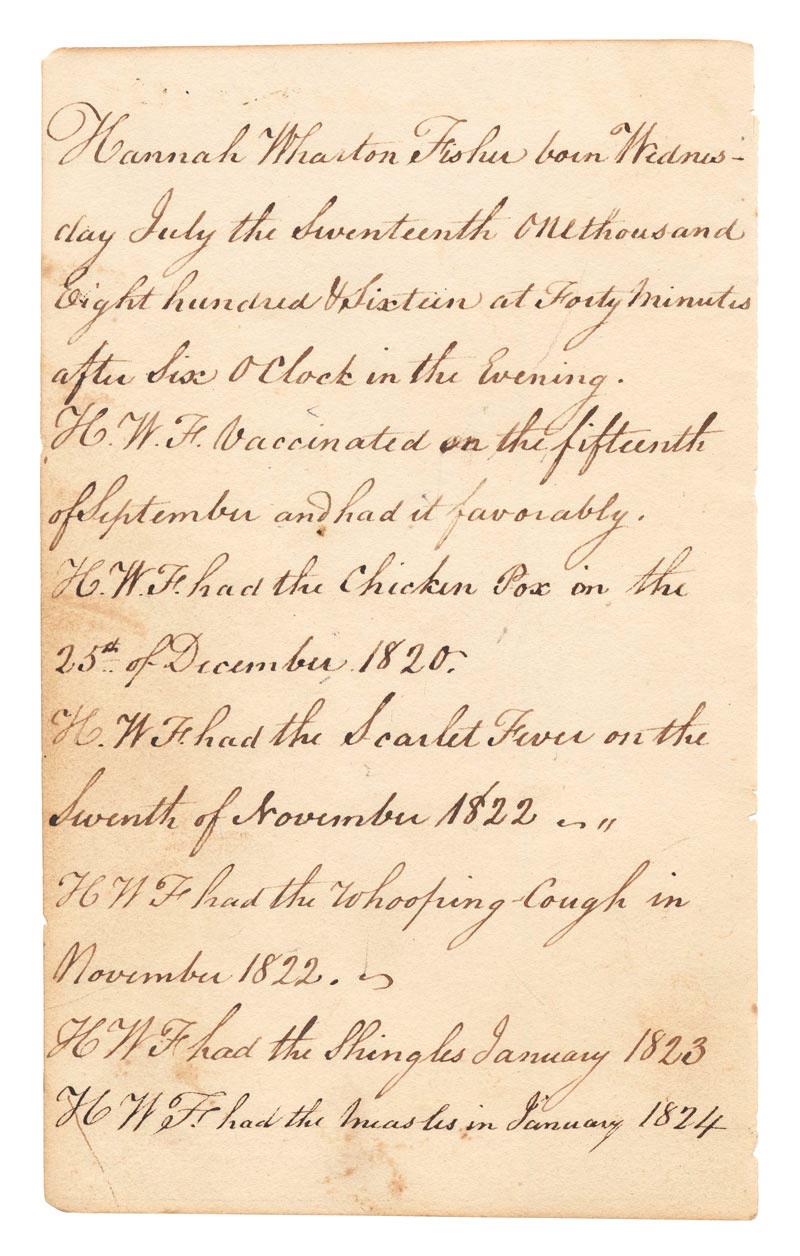 Hannah Wharton Fisher born Wednes-
day July the Seventeenth One thousand
Eight hundred & Sixteen at Forty Minutes
after Six O Clock in the Evening.
H. W. F. Vaccinated on the fifteenth
of September and had it favorably.
H. W. F. had the Chicken Pox on the
25th of December 1820.
H. W F had the Scarlet Fever on the
Seventh of November 1822 〃
H W F had the Whooping-Cough in
November 1822.
H W F had the Shingles January 1823
H W F. had the Measles in January 1824